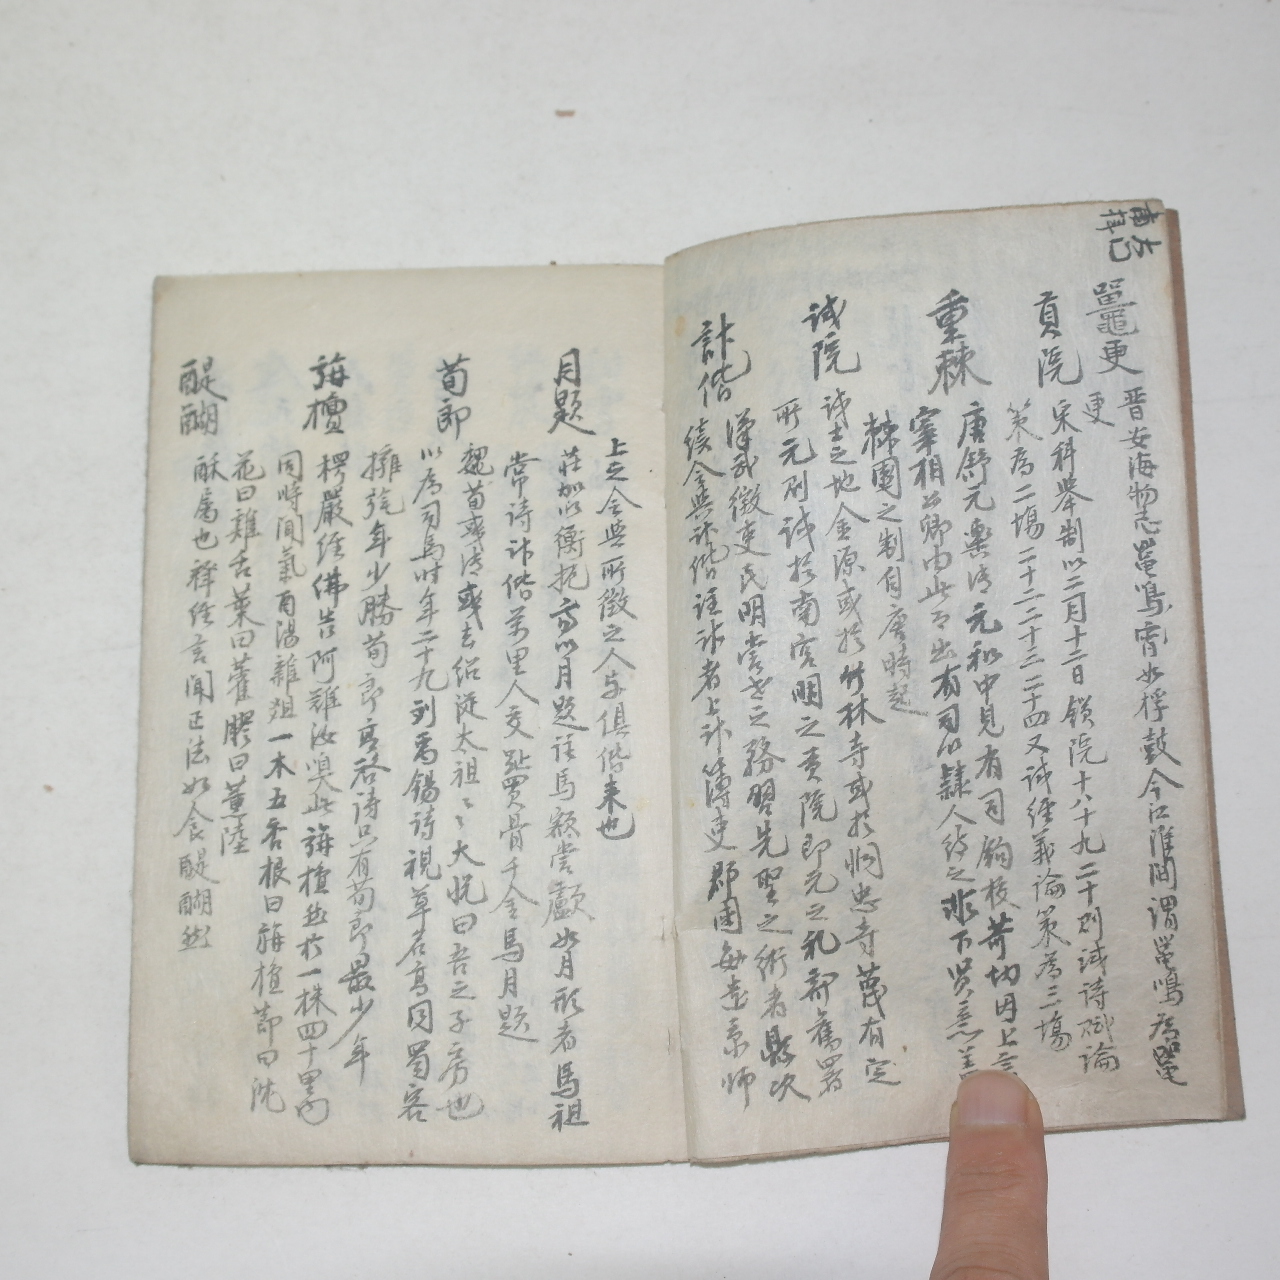 鼉更
晋安海物志鼉鳴宵如桴鼓今江淮間謂鼉鳴為鼉
更
貢院
宋科舉制以二月十二日鎖院十八十九二十則試詩賦論
策為二場二十二二十三二十四又試経義論策為三場
重棘
唐舒元輿傳元和中見有司鉤校苛切因上言
宰相公卿由此而出有司以隸人待之非下賢意
棘圍之制自唐時起
試院
試士之地金源或於竹林寺或於憫忠寺蔑有定
所元則試於南宮明之貢院即元之礼部舊署
計偕
漢武徵吏民明當世之務習先聖之術者縣次
續令與計偕註計者上計簿吏郡國每歲京師
上之令與所徵之人与俱偕来也
月題
荘加以衡扼斉以月題註馬額當顱如月形者馬祖
常詩計偕萬里人交趾買骨千金馬月題
荀郎
魏荀彧傳彧去紹從太祖〻大悅曰吾之子房也
以為司馬時年二十九列禹錫詩視草名高同蜀客
擁旄年少勝荀郎高啓詩只有荀郎最少年
旃檀
楞嚴経佛告阿難汝嗅此旃檀然於一株四十里內
同時聞氣酉陽雜俎一木五香根曰旃檀節曰沈
花曰雞舌葉曰藿膠曰薰陸
醍醐
酥属也釋経言聞正法如食醍醐然